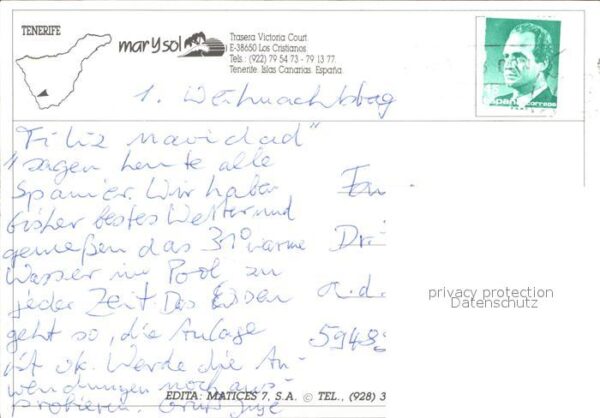 TENERIFE
mar y sol
Trasera Victoria Court.
E-38650 Los Cristianos
Tels.: (922) 79 54 73 - 79 13 77
Tenerife. Islas Canarias. España
España correos
1. Weihnachtstag
"Feliz navidad"
sagen heute alle
Spanier. Wir haben
bisher bestes Wetter und
genießen das 31° warme
Wasser im Pool zu
jeder Zeit. Das Essen
geht so, die Anlage
ist ok. Werde die An-
wendungen noch aus-
probieren. Gruß
Fam
Dr.
a.d.
5948
privacy protection
Datenschutz
EDITA: MATICES 7, S.A. © TEL., (928) 3